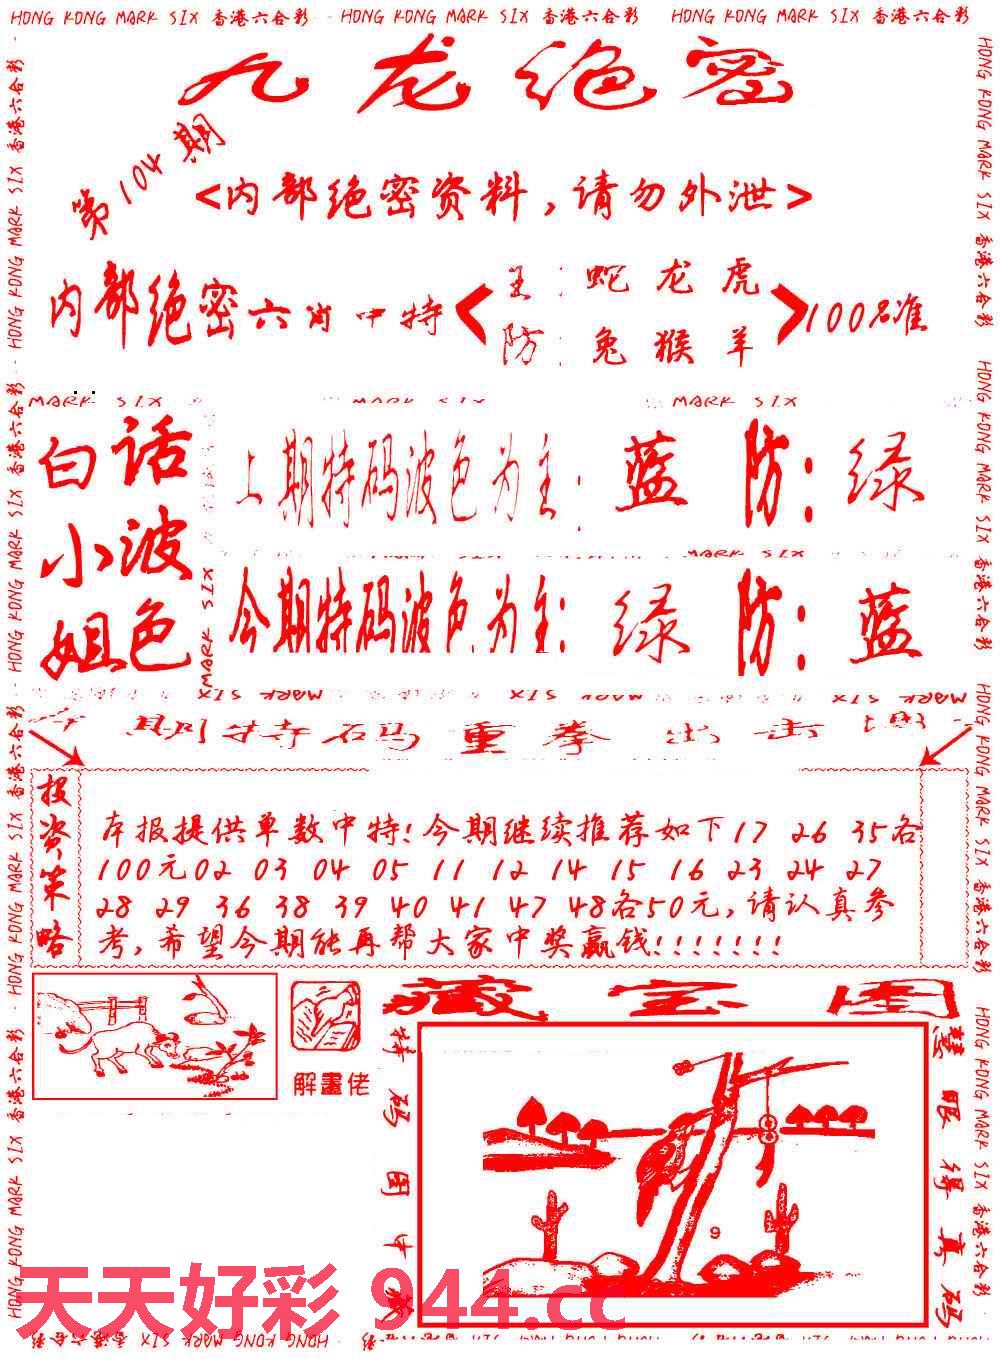 HONG KONG MARK SIX 香港六合彩 HONG KONG MARK SIX 香港六合彩 HONG KONG MARK SIX 香港六合彩
九龙绝密
第104期
<内部绝密资料，请勿外泄>
内部绝密六肖中特
主：蛇 龙 虎
防：兔 猴 羊
100%准
MARK SIX MARK SIX MARK SIX
白话
小波
姐色
上期特码波色为主：蓝 防：绿
MARK SIX
今期特码波色为主：绿 防：蓝
MARK SIX
期特码重拳出击
投资策略
本报提供单数中特！今期继续推荐如下17 26 35各
100元02 03 04 05 11 12 14 15 16 23 24 27
28 29 36 38 39 40 41 47 48各50元，请认真参
考，希望今期能再帮大家中奖赢钱！！！！！！！
解畫佬
藏宝图
特码图中
慧眼得真码
9
天天好彩 944.cc
HONG KONG MARK SIX 香港六合彩